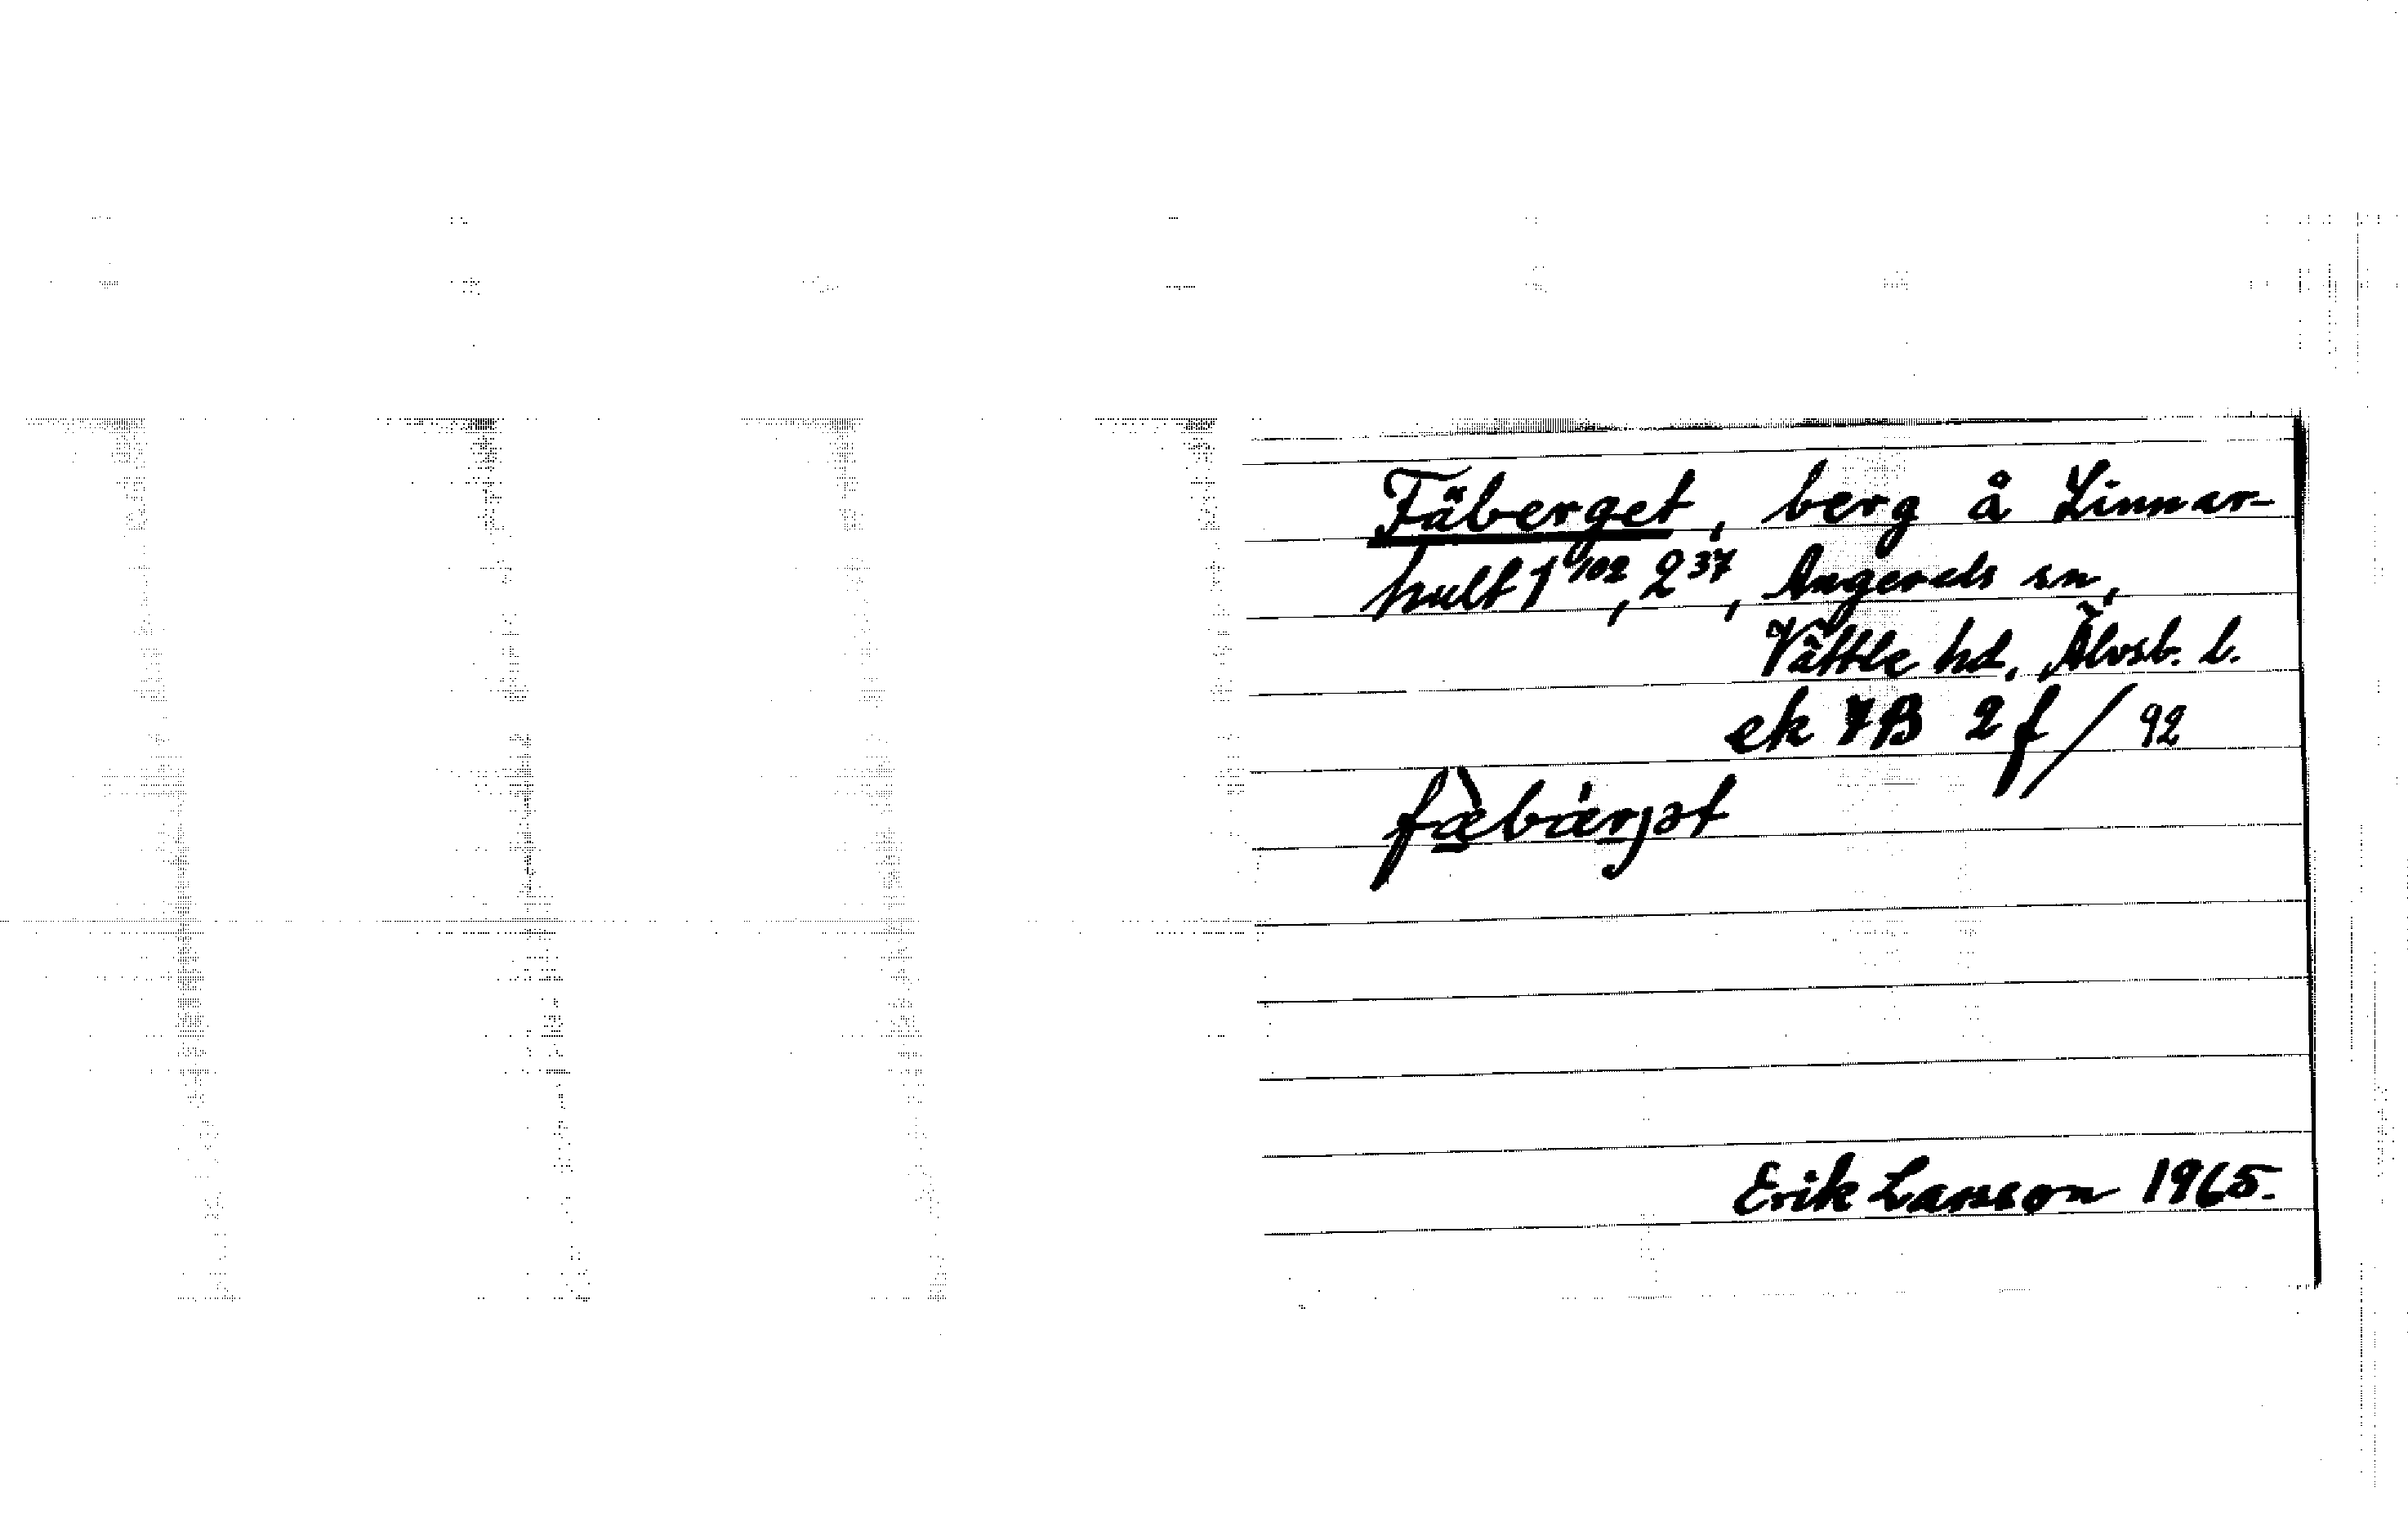 Fäberget, berg å Linnar-
hult 1¹⁰², 2³⁷, Angereds sn,
Vättle hd, Älvsb. l.
ek 7B 2f / 92
fæ̀bàrjət
Erik Larsson 1965.